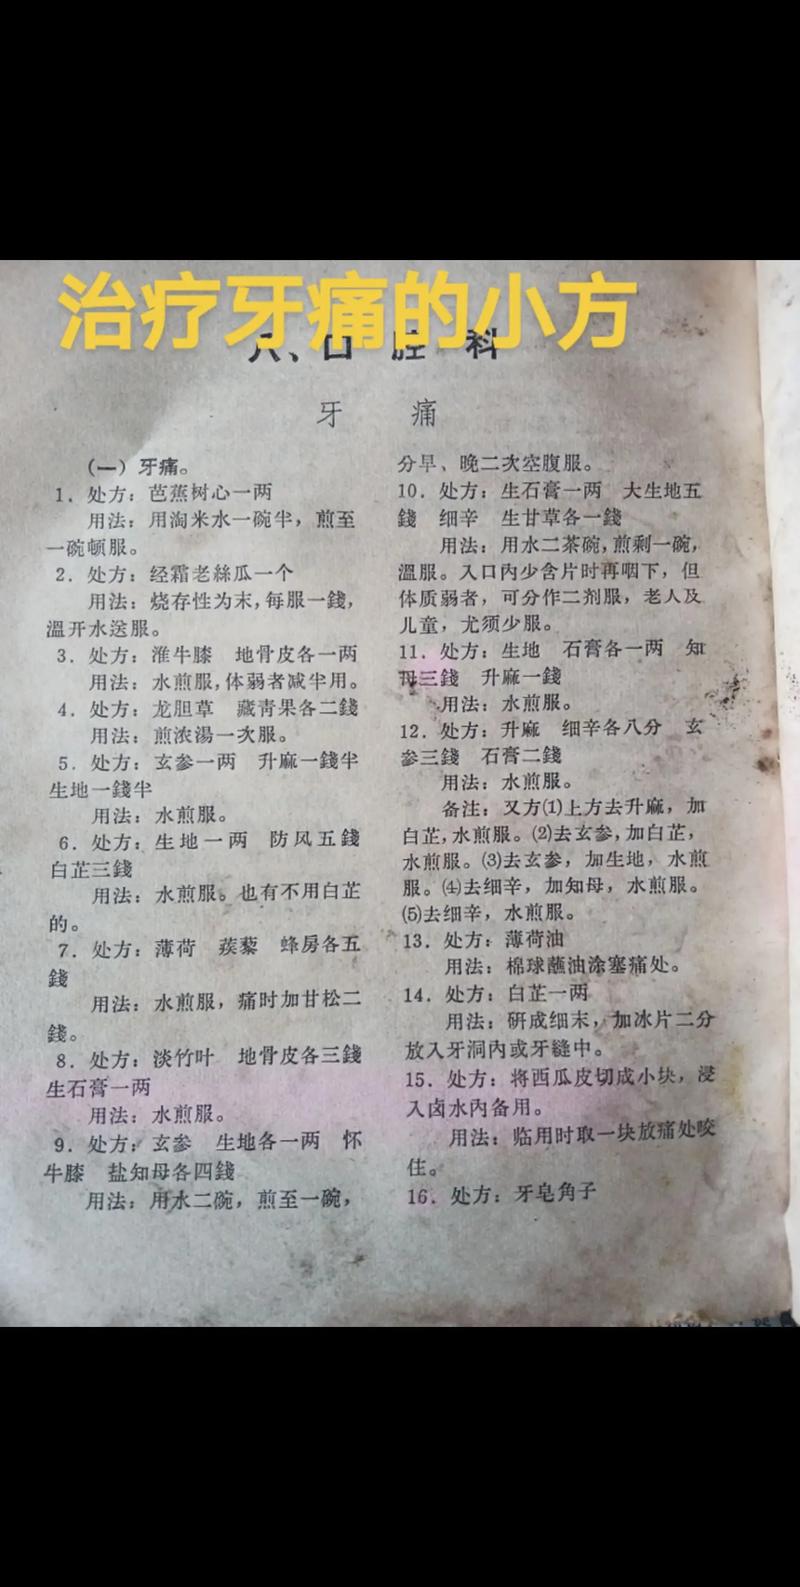 治疗牙痛的小方
八、口腔科
牙 痛
(一)牙痛。
1. 处方:芭蕉树心一两
用法:用淘米水一碗半,煎至
一碗顿服。
2. 处方:经霜老絲瓜一个
用法:烧存性为末,每服一錢,
溫开水送服。
3. 处方:淮牛膝 地骨皮各一两
用法:水煎服,体弱者减半用。
4. 处方:龙胆草 藏青果各二錢
用法:煎浓湯一次服。
5. 处方:玄参一两 升麻一錢半
生地一錢半
用法:水煎服。
6. 处方:生地一两 防风五錢
白芷三錢
用法:水煎服。也有不用白芷
的。
7. 处方:薄荷 蒺藜 蜂房各五
錢
用法:水煎服,痛时加甘松二
錢。
8. 处方:淡竹叶 地骨皮各三錢
生石膏一两
用法:水煎服。
9. 处方:玄参 生地各一两 怀
牛膝 盐知母各四錢
用法:用水二碗,煎至一碗,
分早、晚二次空腹服。
10. 处方:生石膏一两 大生地五
錢 细辛 生甘草各一錢
用法:用水二茶碗,煎剩一碗,
溫服。入口內少含片时再咽下,但
体质弱者,可分作二剂服,老人及
儿童,尤须少服。
11. 处方:生地 石膏各一两 知
母三錢 升麻一錢
用法:水煎服。
12. 处方:升麻 细辛各八分 玄
参三錢 石膏二錢
用法:水煎服。
备注:又方⑴上方去升麻,加
白芷,水煎服。⑵去玄参,加白芷,
水煎服。⑶去玄参,加生地,水煎
服。⑷去细辛,加知母,水煎服。
⑸去细辛,水煎服。
13. 处方:薄荷油
用法:棉球蘸油涂塞痛处。
14. 处方:白芷一两
用法:研成细末,加冰片二分
放入牙洞內或牙縫中。
15. 处方:将西瓜皮切成小块,浸
入卤水內备用。
用法:临用时取一块放痛处咬
住。
16. 处方:牙皂角子